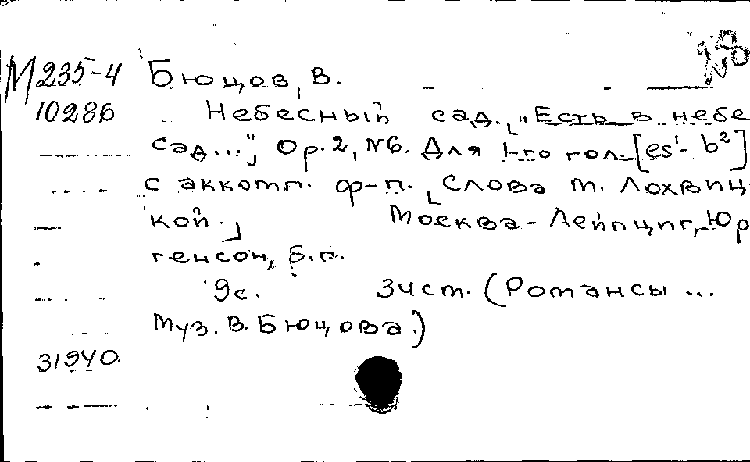 М235-4 Бюцов, В.
10286 Небесный сад. „Есть в небе
сад...", Op. 2, №6. Для 1-го гол. [es¹- b²]
с аккомп. ф-п. [Слова М. Лохвиц
кой.] Москва - Лейпциг, Юр
генсон, б.г.
9с. Зчст. (Романсы ...
Муз. В. Бюцова.)
31940